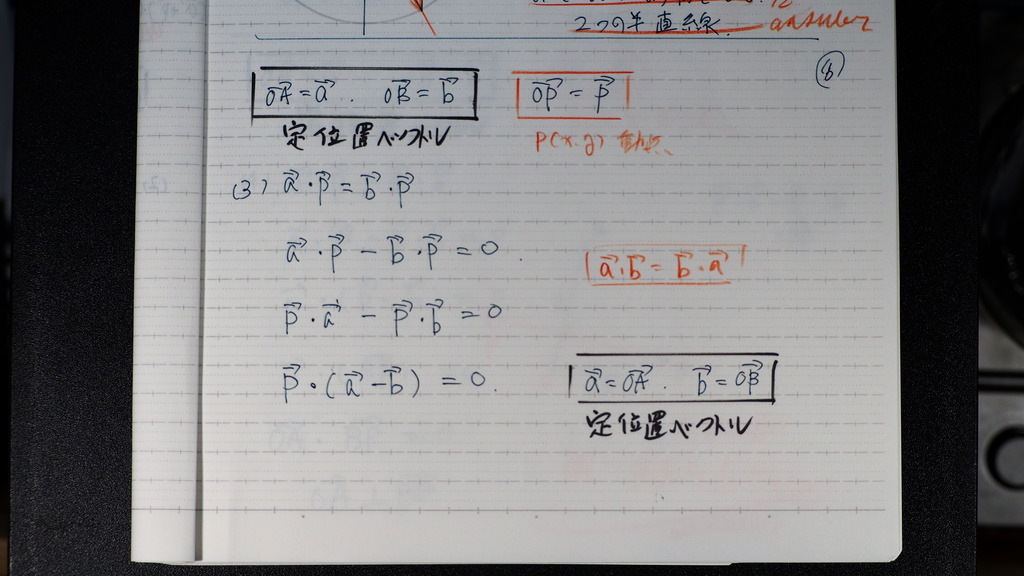 2つの半直線. answer
(8)
OA→ = a→ . OB→ = b→
定位置ベクトル
OP→ = p→
P(x.y) 動点、
(3) a→・p→ = b→・p→
a→・p→ − b→・p→ = 0 .
a→・b→ = b→・a→
p→・a→ − p→・b→ = 0
p→・(a→−b→) = 0.
a→ = OA→ . b→ = OB→
定位置ベクトル